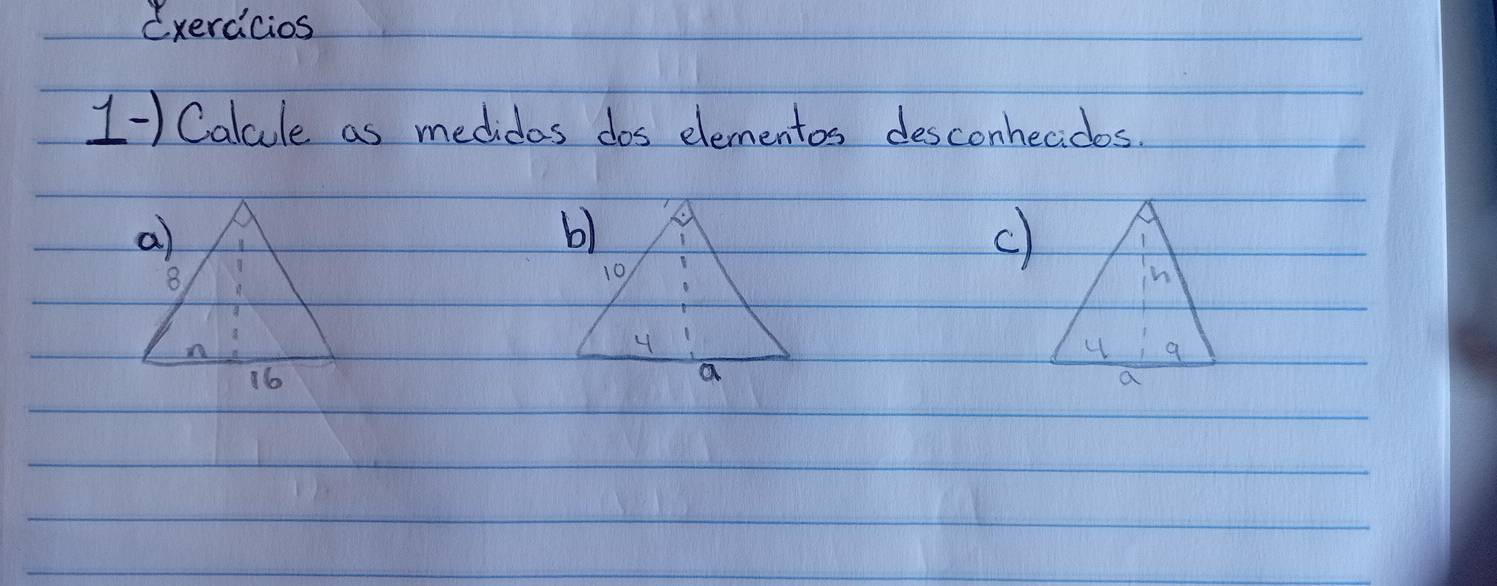 Exercícios
1-) Calcule as medidas dos elementos desconhecidos.
a) 8 n 16
b) 10 4 a
c) h 4 9 a